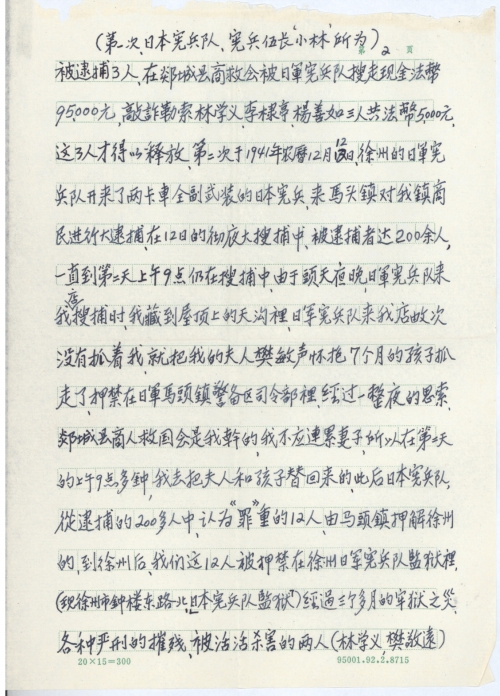 (第一次、日本宪兵队、宪兵伍长“小林”所为)
第 2 页
被逮捕3人、在郯城县商救会被日軍宪兵队搜走现金法幣
95,000元,敲詐勒索林学义、李棣亭、楊善如三人共法幣5,000元,
这3人才得以釋放、第二次于1941年农曆12月12日,徐州的日軍宪
兵队开来了两卡車全副武裝的日本宪兵、来馬头鎮对我鎮商
民进行大逮捕、在12日的彻夜大搜捕中、被逮捕者达200余人,
一直到第二天上午9点仍在搜捕中、由于頭天夜晚、日軍宪兵队来
我店搜捕时、我藏到屋顶上的天沟裡、日軍宪兵队来我店四次
没有抓着我、就把我的夫人樊敏声怀抱7个月的孩子抓
走了、押禁在日軍馬頭鎮警备区司令部裡、經过一整夜的思索、
郯城县商人救国会是我幹的,我不应連累妻子,所以在第二天
的上午9点多钟,我去把夫人和孩子替回来的,此后日本宪兵队,
從逮捕的200多人中、认为“罪”重的12人、由马頭鎮押解徐州
的、到徐州后、我们这12人被押禁在徐州日軍宪兵队監狱裡、
(现徐州市钟楼东路北,“日本宪兵队監狱”)經過三个多月的牢狱之災、
各种严刑的摧残、被活活杀害的两人(林学义、樊敬遠)
20×15=300
95001.92.2.8715